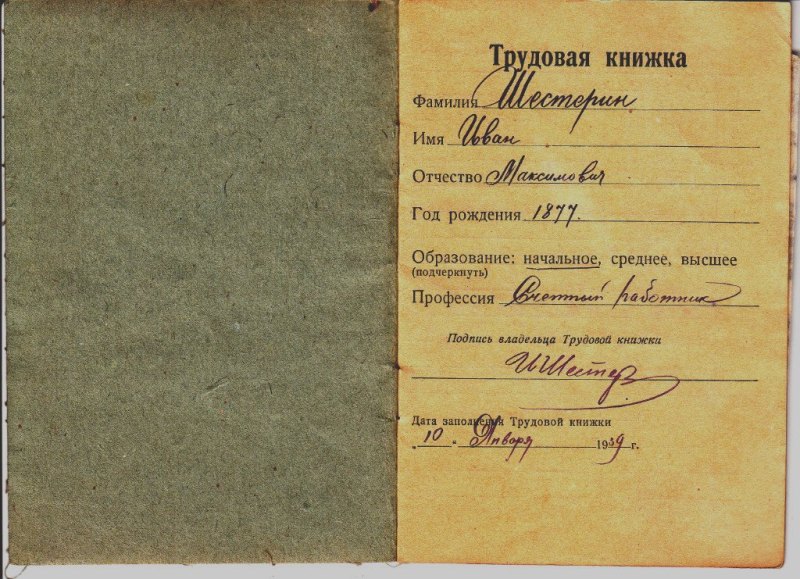 Трудовая книжка
Фамилия Шестерин
Имя Иван
Отчество Максимович
Год рождения 1877.
Образование: начальное, среднее, высшее
(подчеркнуть)
Профессия Счетный работник
Подпись владельца Трудовой книжки
ИШестер
Дата заполнения Трудовой книжки
„10" Января 1939 г.